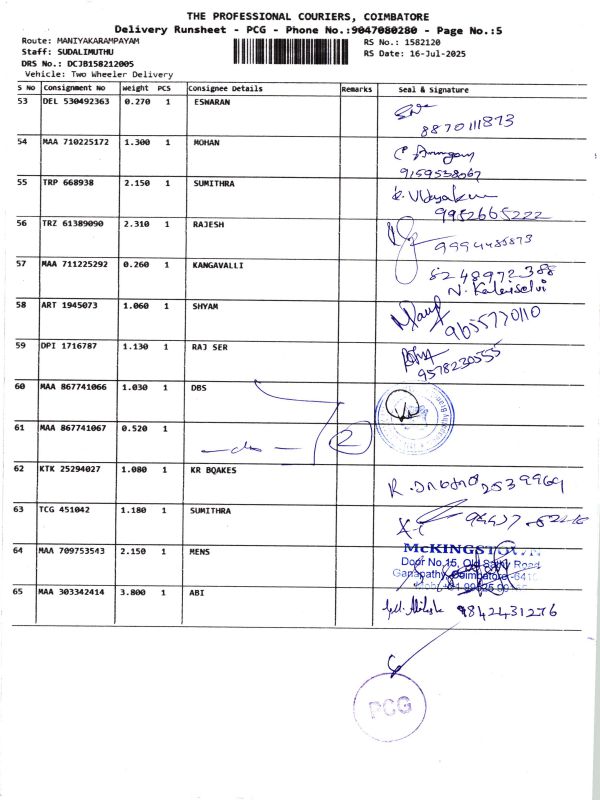 THE PROFESSIONAL COURIERS, COIMBATORE
Delivery Runsheet - PCG - Phone No.:9047080280 - Page No.:5
Route: MANIYAKARAMPAYAM
RS No.: 1582120
Staff: SUDALIMUTHU
RS Date: 16-Jul-2025
DRS No.: DCJB158212005
Vehicle: Two Wheeler Delivery
S No Consignment No Weight PCS Consignee Details Remarks Seal & Signature
53 DEL 530492363 0.270 1 ESWARAN
8870111873
54 MAA 710225172 1.300 1 MOHAN
9159538067
55 TRP 668938 2.150 1 SUMITHRA
9952665222
56 TRZ 61389090 2.310 1 RAJESH
57 MAA 711225292 0.260 1 KANGAVALLI
8248972388
N. Kalaiselvi
58 ART 1945073 1.060 1 SHYAM
9655770110
59 DPI 1716787 1.130 1 RAJ SER
9578230555
60 MAA 867741066 1.030 1 DBS
61 MAA 867741067 0.520 1
-do- 2
62 KTK 25294027 1.080 1 KR BQAKES
2539969
63 TCG 451042 1.180 1 SUMITHRA
64 MAA 709753543 2.150 1 MENS
McKINGSTOWN
Door No.15, Old Sathy Road
Ganapathy, Coimbatore
65 MAA 303342414 3.800 1 ABI
9842431276
PCG